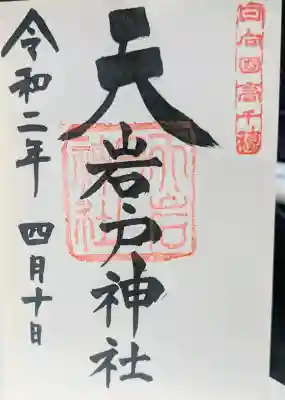 日向国高千穂
天岩戸神社
天岩戸神社
令和二年 四月十日